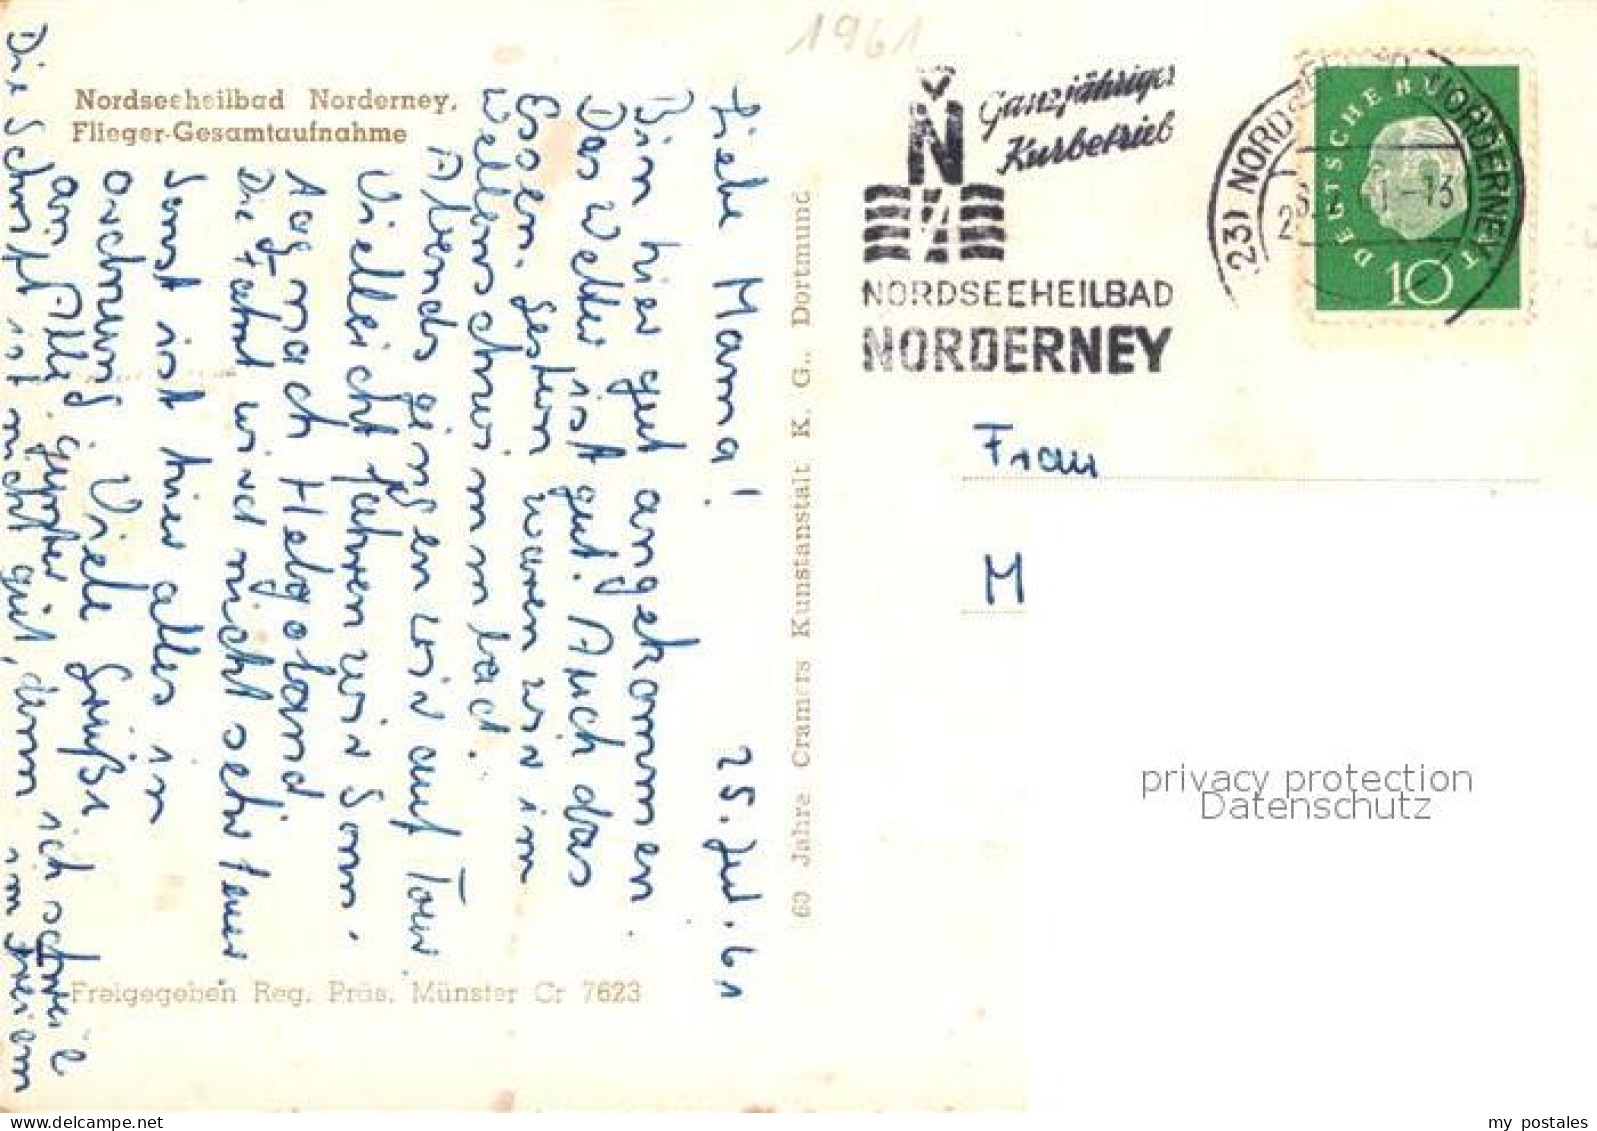 1961
Nordseeheilbad Norderney,
Flieger-Gesamtaufnahme
Liebe Mama!
25. Jul. 61
Bin hier gut angekommen
Das Wetter ist gut. Auch das
Essen. Gestern waren wir im
Wellenschwimmbad.
Abends gingen wir auf Tour
Vielleicht fahren wir Sonn.
tag nach Helgoland
Die Fahrt wird nicht sehr teuer
Sonst ist hier alles in
Ordnung. Viele Grüße
am
Die Schrift ist nicht gut, denn ich schreibe
im Freien
60 Jahre Cramers Kunstanstalt K. G., Dortmund
Freigegeben Reg. Präs. Münster Cr 7623
N
Ganzjähriger
Kurbetrieb
NORDSEEHEILBAD
NORDERNEY
(23) NORDSEEBAD NORDERNEY
DEUTSCHE BUNDESPOST
10
Frau
M
privacy protection
Datenschutz
my postales